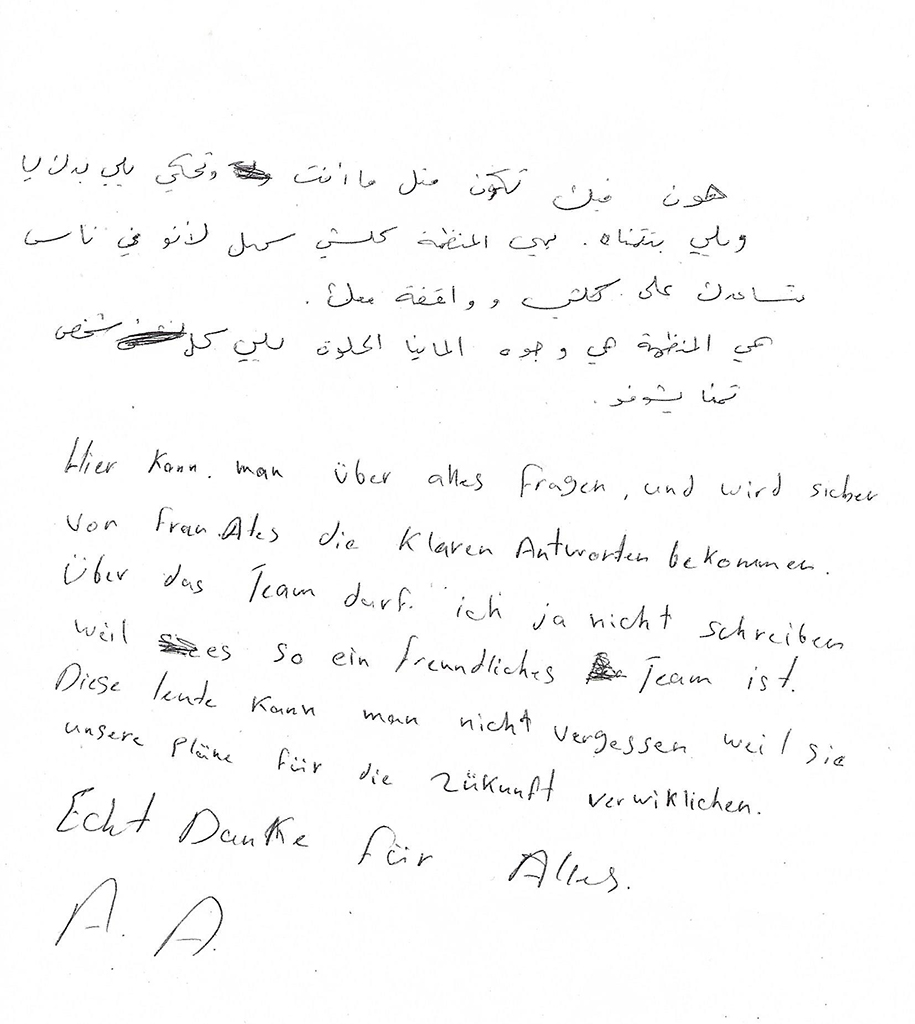 هون فيك تكون متل ما أنت وتحكي يلي بدك ياه
ويلي بتتمناه. بهي المنظمة كلشي سهل لأنو في ناس
بتساعدك على كلشي وواقفة معك.
هي المنظمة هي وجوه المانيا الحلوة يلي كل شخص
تمنا يشوفو.
Hier kann man über alles fragen, und wird sicher
von Frau Ates die klaren Antworten bekommen.
Über das Team darf ich ja nicht schreiben
weil es so ein freundliches Team ist.
Diese leute kann man nicht vergessen weil sie
unsere Pläne für die Zükunft verwiklichen.
Echt Danke für Alles.
A. A.